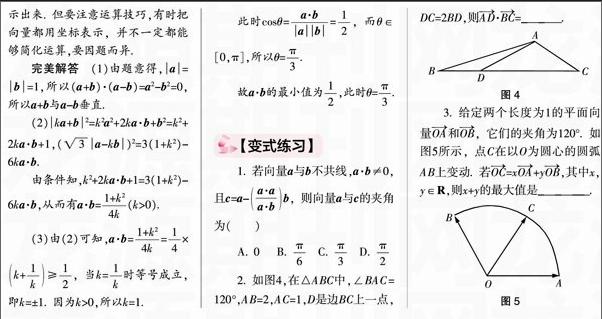 示出来. 但要注意运算技巧,有时把
向量都用坐标表示, 并不一定都能
够简化运算,要因题而异.
完美解答 (1)由题意得,|a|=
|b|=1,所以(a+b)·(a-b)=a²-b²=0,
所以a+b与a-b垂直.
(2)|ka+b|²=k²a²+2ka·b+b²=k²+
2ka·b+1,(√3|a-kb|)²=3(1+k²)-
6ka·b.
由条件知,k²+2ka·b+1=3(1+k²)-
6ka·b,从而有a·b=(1+k²)/(4k)(k>0).
(3)由(2)可知,a·b=(1+k²)/(4k)=1/4×
(k+1/k)≥1/2, 当k=1/k时等号成立,
即k=±1. 因为k>0,所以k=1.
此时cosθ=a·b/(|a||b|)=1/2, 而θ∈
[0,π],所以θ=π/3.
故a·b的最小值为1/2,此时θ=π/3.
【变式练习】
1. 若向量a与b不共线,a·b≠0,
且c=a-(a·a/a·b)b, 则向量a与c的夹角
为( )
A. 0 B. π/6 C. π/3 D. π/2
2. 如图4,在△ABC中,∠BAC=
120°,AB=2,AC=1,D是边BC上一点,
DC=2BD,则AD·BC=________.
A
B D C
图4
3. 给定两个长度为1的平面向
量OA和OB, 它们的夹角为120°. 如
图5所示, 点C在以O为圆心的圆弧
AB上变动. 若OC=xOA+yOB,其中x,
y∈R,则x+y的最大值是________.
B C
O A
图5